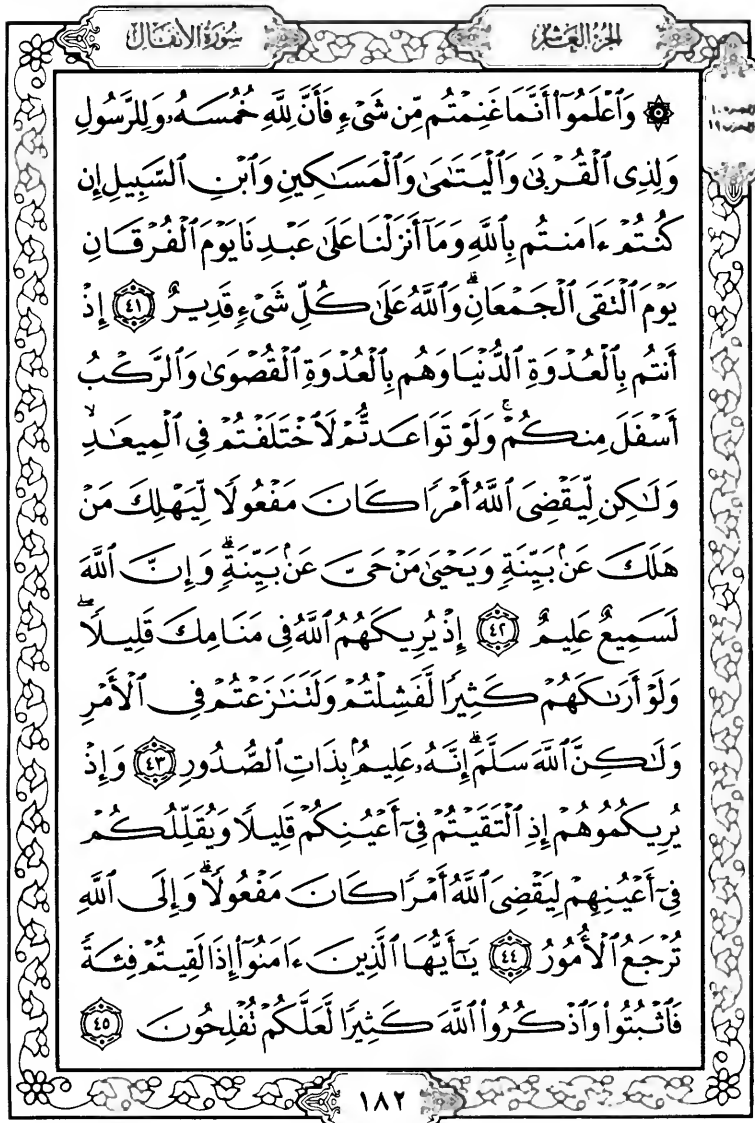 سُورَةُ الْأَنفَالِ
الجُزْءُ العَاشِرُ
۞ وَٱعۡلَمُوٓاْ أَنَّمَا غَنِمۡتُم مِّن شَيۡءٖ فَأَنَّ لِلَّهِ خُمُسَهُۥ وَلِلرَّسُولِ
وَلِذِي ٱلۡقُرۡبَىٰ وَٱلۡيَتَٰمَىٰ وَٱلۡمَسَٰكِينِ وَٱبۡنِ ٱلسَّبِيلِ إِن
كُنتُمۡ ءَامَنتُم بِٱللَّهِ وَمَآ أَنزَلۡنَا عَلَىٰ عَبۡدِنَا يَوۡمَ ٱلۡفُرۡقَانِ
يَوۡمَ ٱلۡتَقَى ٱلۡجَمۡعَانِۗ وَٱللَّهُ عَلَىٰ كُلِّ شَيۡءٖ قَدِيرٌ ٤١ إِذۡ
أَنتُم بِٱلۡعُدۡوَةِ ٱلدُّنۡيَا وَهُم بِٱلۡعُدۡوَةِ ٱلۡقُصۡوَىٰ وَٱلرَّكۡبُ
أَسۡفَلَ مِنكُمۡۚ وَلَوۡ تَوَاعَدتُّمۡ لَٱخۡتَلَفۡتُمۡ فِي ٱلۡمِيعَٰدِ وَۙ
وَلَٰكِن لِّيَقۡضِيَ ٱللَّهُ أَمۡرٗا كَانَ مَفۡعُولٗا لِّيَهۡلِكَ مَنۡ
هَلَكَ عَنۢ بَيِّنَةٖ وَيَحۡيَىٰ مَنۡ حَيَّ عَنۢ بَيِّنَةٖۗ وَإِنَّ ٱللَّهَ
لَسَمِيعٌ عَلِيمٌ ٤٢ إِذۡ يُرِيكَهُمُ ٱللَّهُ فِي مَنَامِكَ قَلِيلٗاۖ
وَلَوۡ أَرَىٰكَهُمۡ كَثِيرٗا لَّفَشِلۡتُمۡ وَلَتَنَٰزَعۡتُمۡ فِي ٱلۡأَمۡرِ
وَلَٰكِنَّ ٱللَّهَ سَلَّمَۗ إِنَّهُۥ عَلِيمُۢ بِذَاتِ ٱلصُّدُورِ ٤٣ وَإِذۡ
يُرِيكُمُوهُمۡ إِذِ ٱلۡتَقَيۡتُمۡ فِيٓ أَعۡيُنِكُمۡ قَلِيلٗا وَيُقَلِّلُكُمۡ
فِيٓ أَعۡيُنِهِمۡ لِيَقۡضِيَ ٱللَّهُ أَمۡرٗا كَانَ مَفۡعُولٗاۗ وَإِلَى ٱللَّهِ
تُرۡجَعُ ٱلۡأُمُورُ ٤٤ يَٰٓأَيُّهَا ٱلَّذِينَ ءَامَنُوٓاْ إِذَا لَقِيتُمۡ فِئَةٗ
فَٱثۡبُتُواْ وَٱذۡكُرُواْ ٱللَّهَ كَثِيرٗا لَّعَلَّكُمۡ تُفۡلِحُونَ ٤٥
١٨٢